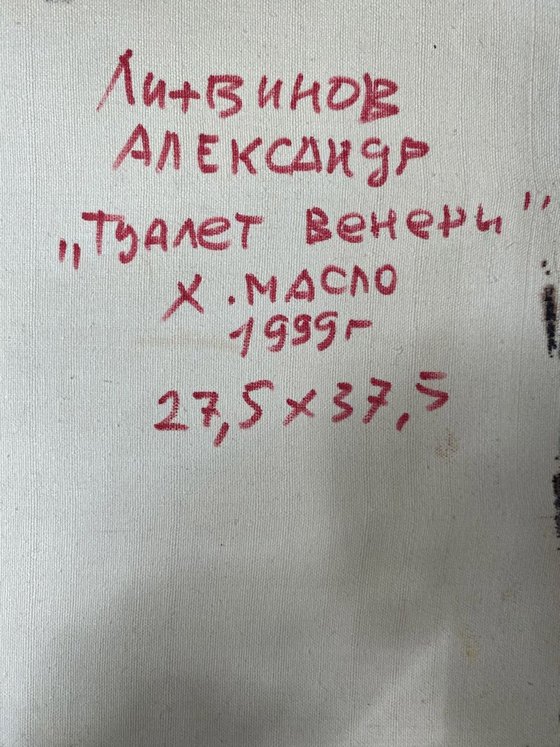 Литвинов
АЛЕКСАНДР
„Туалет Венери"
х. масло
1999г
27,5 х 37,5